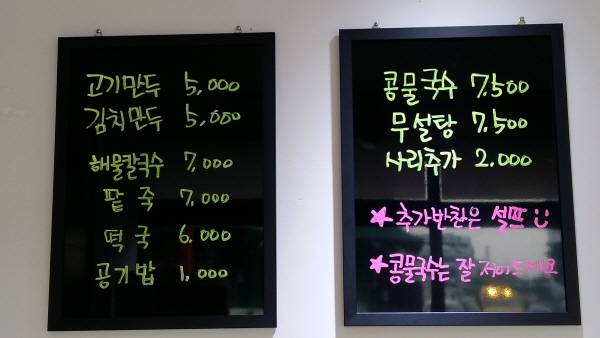 고기만두 5,000
김치만두 5,000
해물칼국수 7,000
팥죽 7,000
떡국 6,000
공기밥 1,000
콩물국수 7.500
무설탕 7.500
사리추가 2.000
★추가반찬은 셀프
★콩물국수는 잘 저어드세요